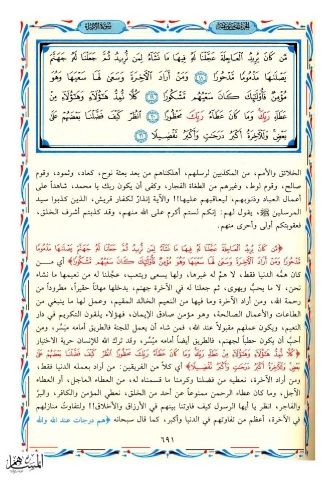 مَّن كَانَ يُرِيدُ ٱلْعَاجِلَةَ عَجَّلْنَا لَهُۥ فِيهَا مَا نَشَآءُ لِمَن نُّرِيدُ ثُمَّ جَعَلْنَا لَهُۥ جَهَنَّمَ
يَصْلَىٰهَا مَذْمُومًا مَّدْحُورًا ۝١٨ وَمَنْ أَرَادَ ٱلْـَٔاخِرَةَ وَسَعَىٰ لَهَا سَعْيَهَا وَهُوَ
مُؤْمِنٌ فَأُو۟لَـٰٓئِكَ كَانَ سَعْيُهُم مَّشْكُورًا ۝١٩ كُلًّا نُّمِدُّ هَـٰٓؤُلَآءِ وَهَـٰٓؤُلَآءِ مِنْ
عَطَآءِ رَبِّكَ وَمَا كَانَ عَطَآءُ رَبِّكَ مَحْظُورًا ۝٢٠ ٱنظُرْ كَيْفَ فَضَّلْنَا بَعْضَهُمْ عَلَىٰ
بَعْضٍ وَلَلْـَٔاخِرَةُ أَكْبَرُ دَرَجَـٰتٍ وَأَكْبَرُ تَفْضِيلًا ۝٢١
الخلائق والأمم، من المكذبين لرسلهم، أهلكناهم من بعد بعثة نوح، كعاد، وثمود، وقوم
صالح، وقوم لوط، وغيرهم من الطغاة الفجار، وكفى أن يكون ربك يا محمد، شاهداً على
أعمال العباد وذنوبهم، ليعاقبهم عليها!! والآية إنذارٌ لكفار قريش، الذين كذبوا سيد
المرسلين ﷺ، يقول لهم: إنكم لستم أكرم على الله منهم، وقد كذبتم أشرف الخلق،
فعقوبتكم أولى وأحرى منهم.
﴿مَّن كَانَ يُرِيدُ ٱلْعَاجِلَةَ عَجَّلْنَا لَهُۥ فِيهَا مَا نَشَآءُ لِمَن نُّرِيدُ ثُمَّ جَعَلْنَا لَهُۥ جَهَنَّمَ يَصْلَىٰهَا مَذْمُومًا
مَّدْحُورًا وَمَنْ أَرَادَ ٱلْـَٔاخِرَةَ وَسَعَىٰ لَهَا سَعْيَهَا وَهُوَ مُؤْمِنٌ فَأُو۟لَـٰٓئِكَ كَانَ سَعْيُهُم مَّشْكُورًا﴾ أي من
كان همُّه الدنيا فقط، لا همَّ له غيرها، ولها يسعى ويتعب، عجَّلنا له من نعيمها ما نشاء
نحن، لا ما يحبُّ ويهوى، ثم جعلنا له في الآخرة جهنم، يدخلها مهاناً حقيراً، مطروداً من
رحمة الله، ومن أراد الآخرة وما فيها من النعيم الخالد المقيم، وعمل لها ما ينبغي من
الطاعات والأعمال الصالحة، وهو مؤمن صادق الإيمان، فهؤلاء يلقون التكريم في دار
النعيم، ويكون عملهم مقبولاً عند الله، فمن شاء أن يعمل للجنة فالطريق أمامه ميسَّر، ومن
أحبَّ أن يكون حطباً لجهنم، فالطريق أيضاً أمامه ميسَّر، وقد ترك الله للإنسان حرية الاختيار
﴿كُلًّا نُّمِدُّ هَـٰٓؤُلَآءِ وَهَـٰٓؤُلَآءِ مِنْ عَطَآءِ رَبِّكَ وَمَا كَانَ عَطَآءُ رَبِّكَ مَحْظُورًا ٱنظُرْ كَيْفَ فَضَّلْنَا بَعْضَهُمْ عَلَىٰ
بَعْضٍ وَلَلْـَٔاخِرَةُ أَكْبَرُ دَرَجَـٰتٍ وَأَكْبَرُ تَفْضِيلًا﴾ أي كلاً من الفريقين: من أراد بعمله الدنيا فقط،
ومن أراد الآخرة، نعطيه من فضلنا وكرمنا ما قسمناه له، من العطاء العاجل، أو العطاء
الآجل، وما كان عطاء الرحمن ممنوعاً عن أحد من الخلق، نعطي المؤمن والكافر، والبرَّ
والفاجر، انظر يا أيها الرسول كيف فاوتنا بينهم في الأرزاق والأخلاق!! ولتفاوتُ منازلهم
في الآخرة، أعظم من تفاوتهم في الدنيا وأكبر، كما قال سبحانه ﴿هم درجات عند الله والله
٦٩١